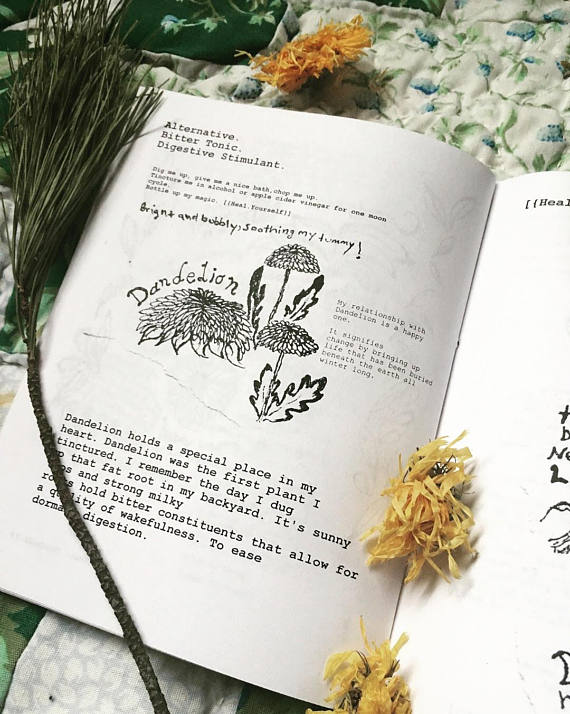 Alternative.
Bitter Tonic.
Digestive Stimulant.
Dig me up, give me a nice bath,chop me up.
Tincture me in alcohol or apple cider vinegar for one moon
cycle.
Bottle up my magic. [{Heal.Yourself}]
Bright and bubbly, soothing my tummy!
Dandelion
My relationship with
Dandelion is a happy
one.
It signifies
change by bringing up
life that has been buried
beneath the earth all
winter long.
Dandelion holds a special place in my
heart. Dandelion was the first plant I
tinctured. I remember the day I dug
that fat root in my backyard. It's sunny
and strong milky
hold bitter constituents that allow for
a of wakefulness. To ease
digestion.
[{Heal